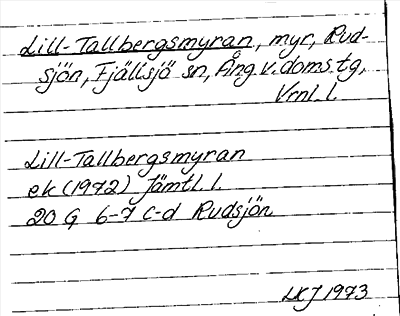 Lill-Tallbergsmyran, myr, Rud-
sjön, Fjällsjö sn, Ång. v. doms. tg,
Vrnl. l.
Lill-Tallbergsmyran
ek (1972) Jämtl. l.
20 G 6-7 c-d Rudsjön
LKJ 1973